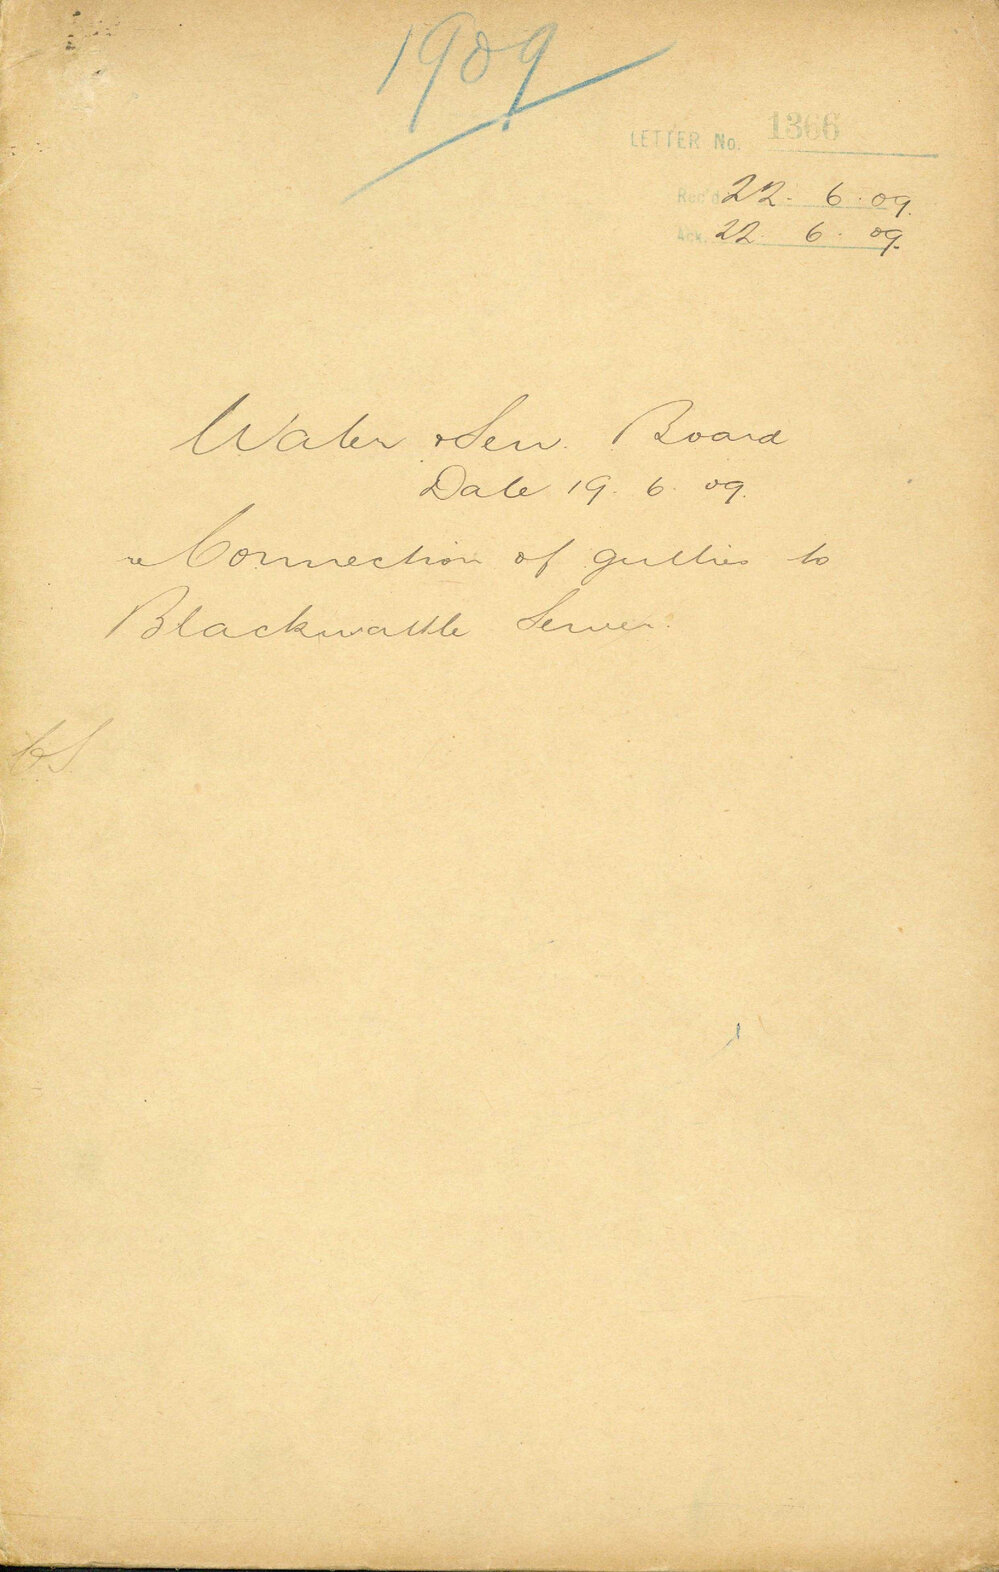 1909
LETTER No. 1366
Rec'd 22. 6. 09.
Ack. 22. 6. 09.
Water & Sew. Board
Date 19. 6. 09.
re Connection of gullies to
Blackwattle Sewer.